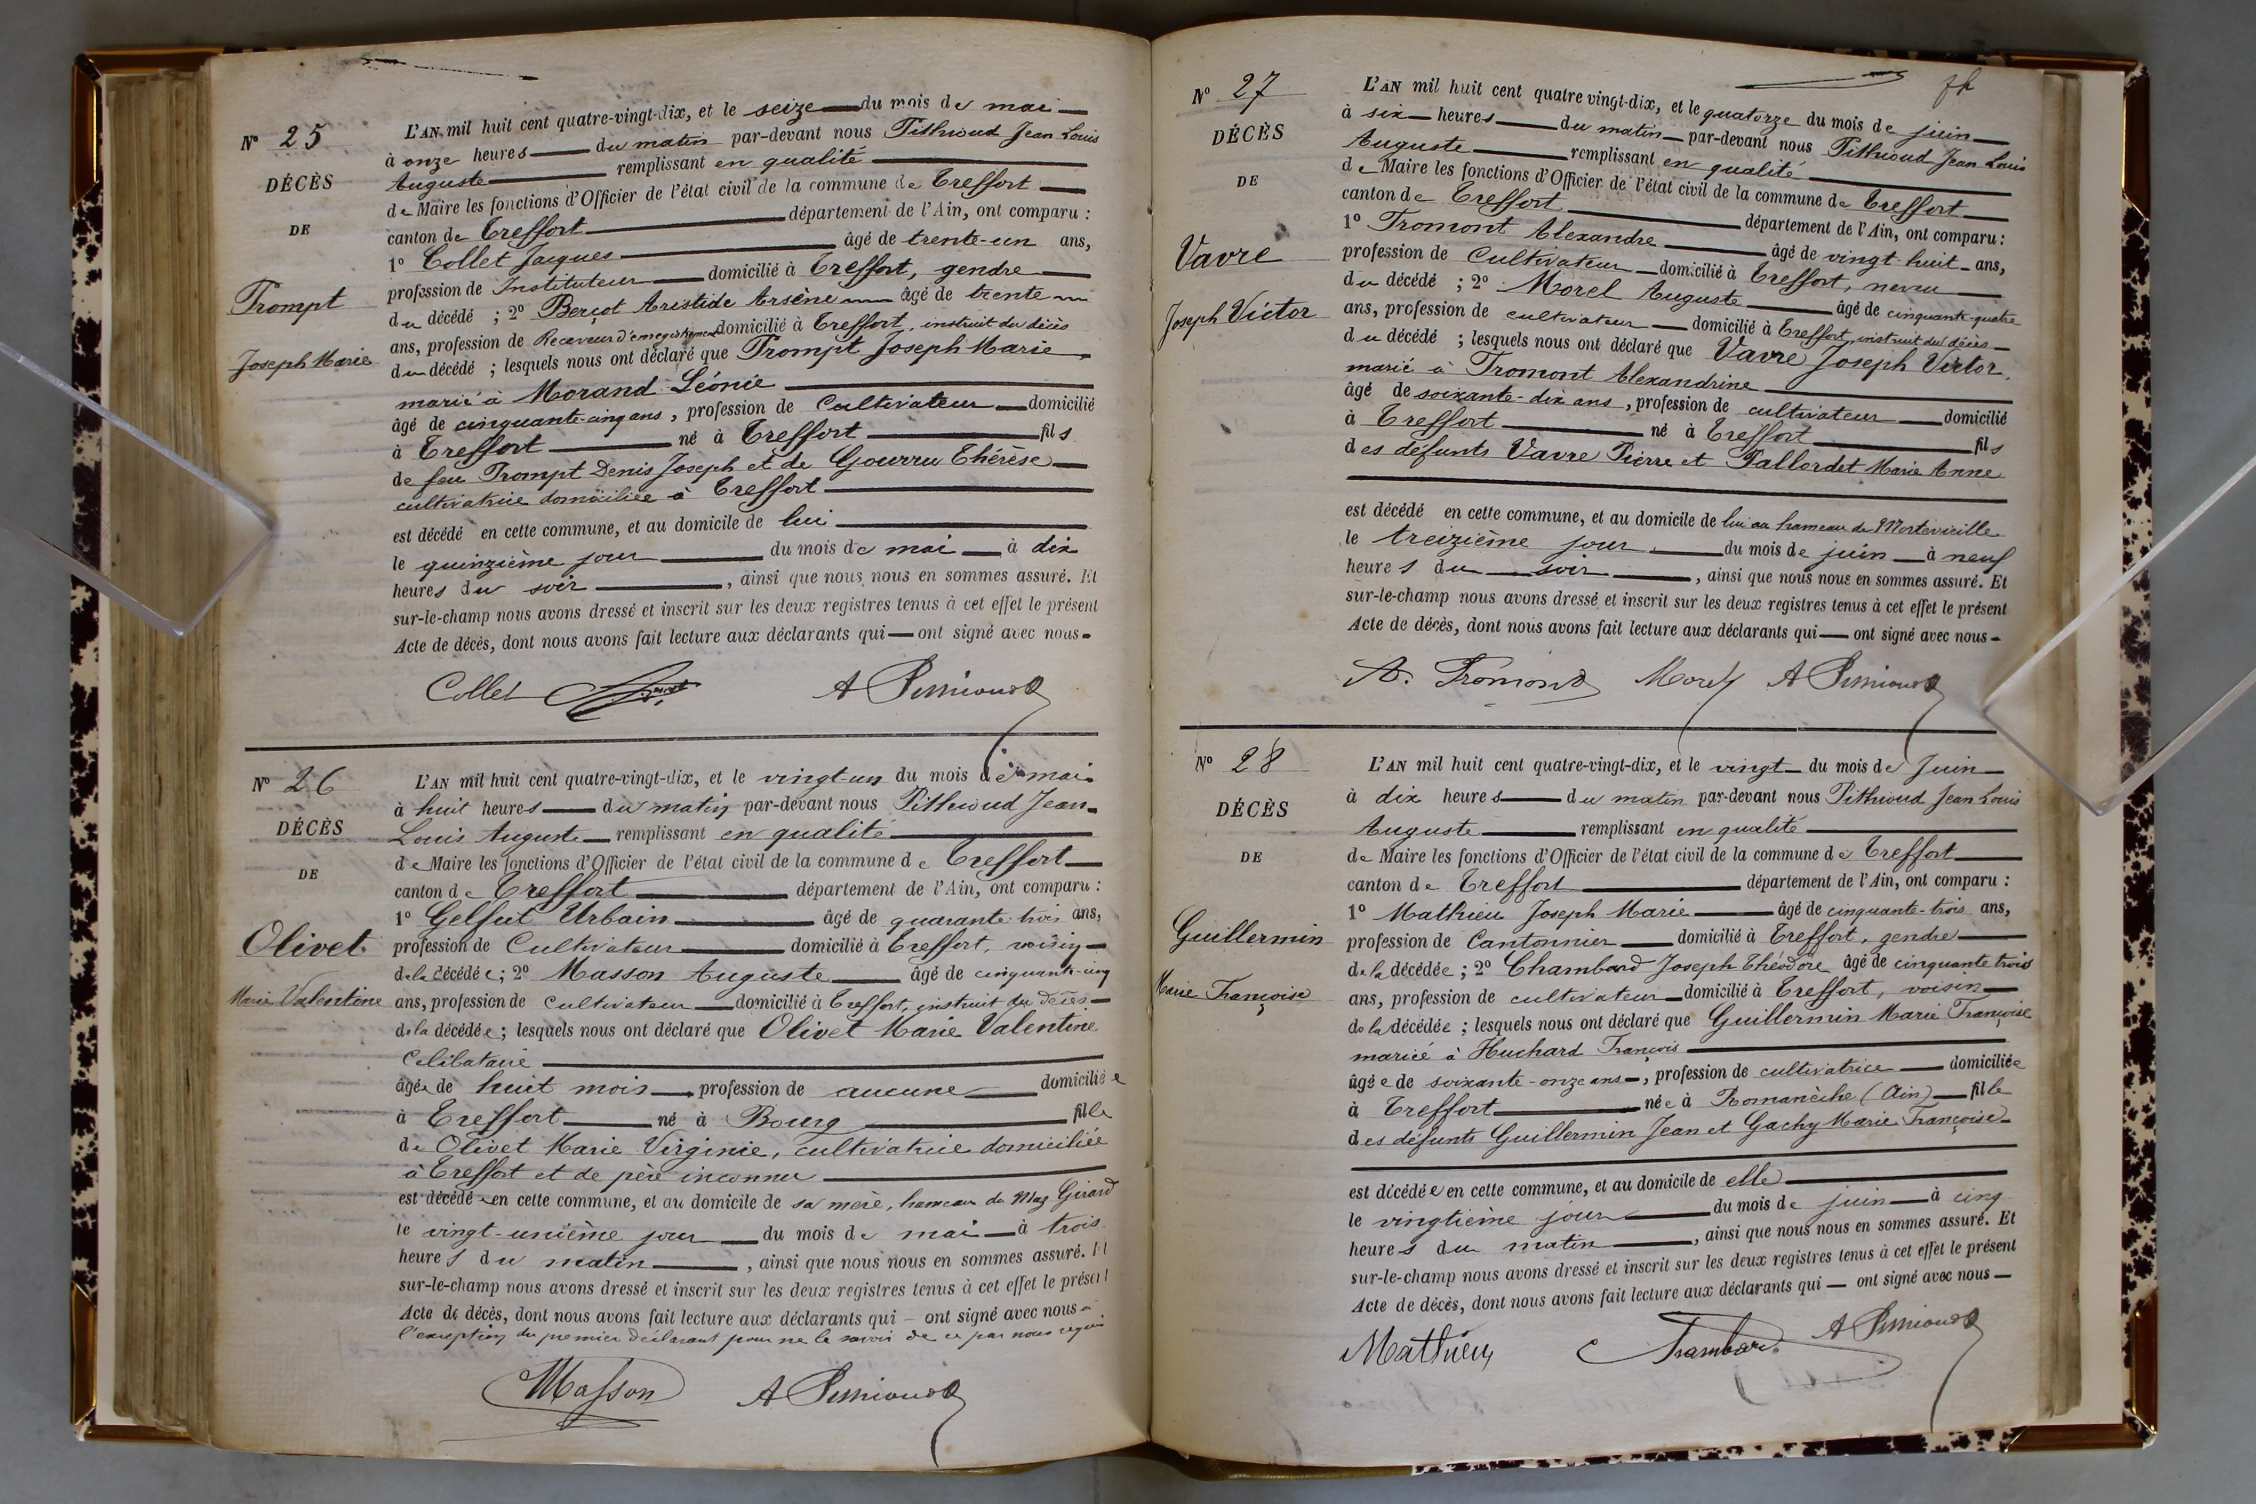 N° 25
DÉCÈS
DE
Trompt
Joseph Marie
L'AN mil huit cent quatre-vingt-dix, et le seize du mois de mai
à onze heures du matin par-devant nous Pithioud Jean Louis
Auguste remplissant en qualité
de Maire les fonctions d'Officier de l'état civil de la commune de Treffort
canton de Treffort département de l'Ain, ont comparu :
1° Collet Jacques âgé de trente-un ans,
profession de Instituteur domicilié à Treffort, gendre
du décédé ; 2° Berçot Aristide Arsène âgé de trente
ans, profession de Receveur d'enregistrement domicilié à Treffort, instruit du décès
du décédé ; lesquels nous ont déclaré que Trompt Joseph Marie
marié à Morand Léonie
âgé de cinquante-cinq ans, profession de Cultivateur domicilié
à Treffort né à Treffort fils
de feu Trompt Denis Joseph et de Gourru Thérèse
cultivatrice domiciliée à Treffort
est décédé en cette commune, et au domicile de lui
le quinzième jour du mois de mai à dix
heures du soir, ainsi que nous nous en sommes assuré. Et
sur-le-champ nous avons dressé et inscrit sur les deux registres tenus à cet effet le présent
Acte de décès, dont nous avons fait lecture aux déclarants qui ont signé avec nous
Collet A Pithioud
N° 26
DÉCÈS
DE
Olivet
Marie Valentine
L'AN mil huit cent quatre-vingt-dix, et le vingt-un du mois de mai
à huit heures du matin par-devant nous Pithioud Jean
Louis Auguste remplissant en qualité
de Maire les fonctions d'Officier de l'état civil de la commune de Treffort
canton de Treffort département de l'Ain, ont comparu :
1° Gelfut Urbain âgé de quarante-trois ans,
profession de Cultivateur domicilié à Treffort, voisin
de la décédée ; 2° Masson Auguste âgé de cinquante-cinq
ans, profession de Cultivateur domicilié à Treffort, instruit du décès
de la décédée ; lesquels nous ont déclaré que Olivet Marie Valentine
Célibataire
âgée de huit mois profession de aucune domiciliée
à Treffort né à Bourg fille
de Olivet Marie Virginie, cultivatrice domiciliée
à Treffort et de père inconnu
est décédée en cette commune, et au domicile de sa mère, hameau de Mas Girard
le vingt-unième jour du mois de mai à trois
heures du matin, ainsi que nous nous en sommes assuré. Et
sur-le-champ nous avons dressé et inscrit sur les deux registres tenus à cet effet le présent
Acte de décès, dont nous avons fait lecture aux déclarants qui – ont signé avec nous à
l'exception du premier déclarant pour ne le savoir de ce par nous requis
Masson A Pithioud
N° 27
DÉCÈS
DE
Vavre
Joseph Victor
L'AN mil huit cent quatre vingt-dix, et le quatorze du mois de juin
à six heures du matin par-devant nous Pithioud Jean Louis
Auguste remplissant en qualité
de Maire les fonctions d'Officier de l'état civil de la commune de Treffort
canton de Treffort département de l'Ain, ont comparu :
1° Tromont Alexandre âgé de vingt-huit ans,
profession de Cultivateur domicilié à Treffort, neveu
du décédé ; 2° Morel Auguste âgé de cinquante-quatre
ans, profession de cultivateur domicilié à Treffort, instruit du décès
du décédé ; lesquels nous ont déclaré que Vavre Joseph Victor,
marié à Tromont Alexandrine
âgé de soixante-dix ans, profession de cultivateur domicilié
à Treffort né à Treffort fils
des défunts Vavre Pierre et Pallordet Marie Anne
est décédé en cette commune, et au domicile de lui au hameau de Mortevieille
le treizième jour du mois de juin à neuf
heures du soir, ainsi que nous nous en sommes assuré. Et
sur-le-champ nous avons dressé et inscrit sur les deux registres tenus à cet effet le présent
Acte de décès, dont nous avons fait lecture aux déclarants qui ont signé avec nous
A. Tromont Morel A Pithioud
N° 28
DÉCÈS
DE
Guillermin
Marie Françoise
L'AN mil huit cent quatre-vingt-dix, et le vingt du mois de Juin
à dix heures du matin par-devant nous Pithioud Jean Louis
Auguste remplissant en qualité
de Maire les fonctions d'Officier de l'état civil de la commune de Treffort
canton de Treffort département de l'Ain, ont comparu :
1° Mathieu Joseph Marie âgé de cinquante-trois ans,
profession de Cantonnier domicilié à Treffort, gendre
de la décédée ; 2° Chambard Joseph Théodore âgé de cinquante trois
ans, profession de cultivateur domicilié à Treffort, voisin
de la décédée ; lesquels nous ont déclaré que Guillermin Marie Françoise
mariée à Huchard François
âgée de soixante-onze ans, profession de cultivatrice domiciliée
à Treffort née à Romanèche (Ain) fille
des défunts Guillermin Jean et Gachy Marie Françoise
est décédée en cette commune, et au domicile de elle
le vingtième jour du mois de juin à cinq
heures du matin, ainsi que nous nous en sommes assuré. Et
sur-le-champ nous avons dressé et inscrit sur les deux registres tenus à cet effet le présent
Acte de décès, dont nous avons fait lecture aux déclarants qui — ont signé avec nous —
Mathieu Chambard A Pithioud